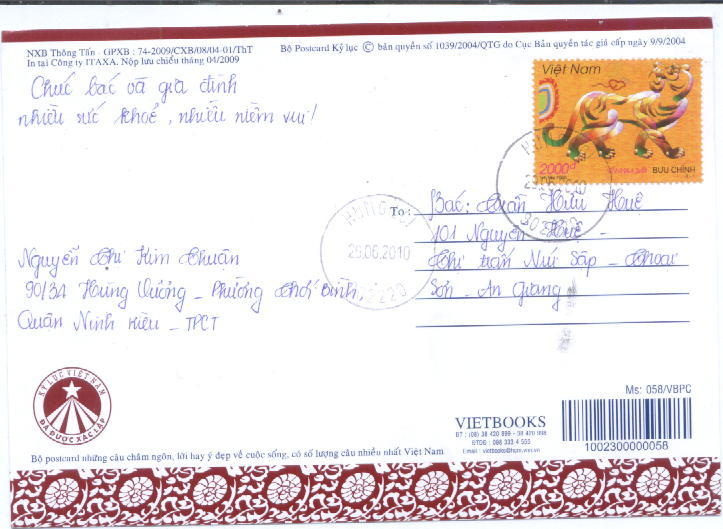 NXB Thông Tấn - GPXB : 74-2009/CXB/08/04-01/ThT
In tại Công ty ITAXA. Nộp lưu chiểu tháng 04/2009
Bộ Postcard Kỷ lục © bản quyền số 1039/2004/QTG do Cục Bản quyền tác giả cấp ngày 9/9/2004
Chúc bác và gia đình
nhiều sức khoẻ, nhiều niềm vui!
Việt Nam
2000đ
BƯU CHÍNH
29.06.2010
902220
To:
Bác: Trần Hữu Huệ
101 Nguyễn Huệ -
Thị trấn Núi Sập - Thoại
Sơn - An Giang
Nguyễn Thị Kim Thuân
90/3A Hùng Vương - Phường Thới Bình,
Quận Ninh Kiều - TPCT
KỶ LỤC VIỆT NAM
ĐÃ ĐƯỢC XÁC LẬP
Ms: 058/VBPC
VIETBOOKS
ĐT : (08) 38 420 899 - 38 420 898
ĐTDĐ : 098 333 4 555
Email : vietbooks@hcm.vnn.vn
1002300000058
Bộ postcard những câu châm ngôn, lời hay ý đẹp về cuộc sống, có số lượng câu nhiều nhất Việt Nam